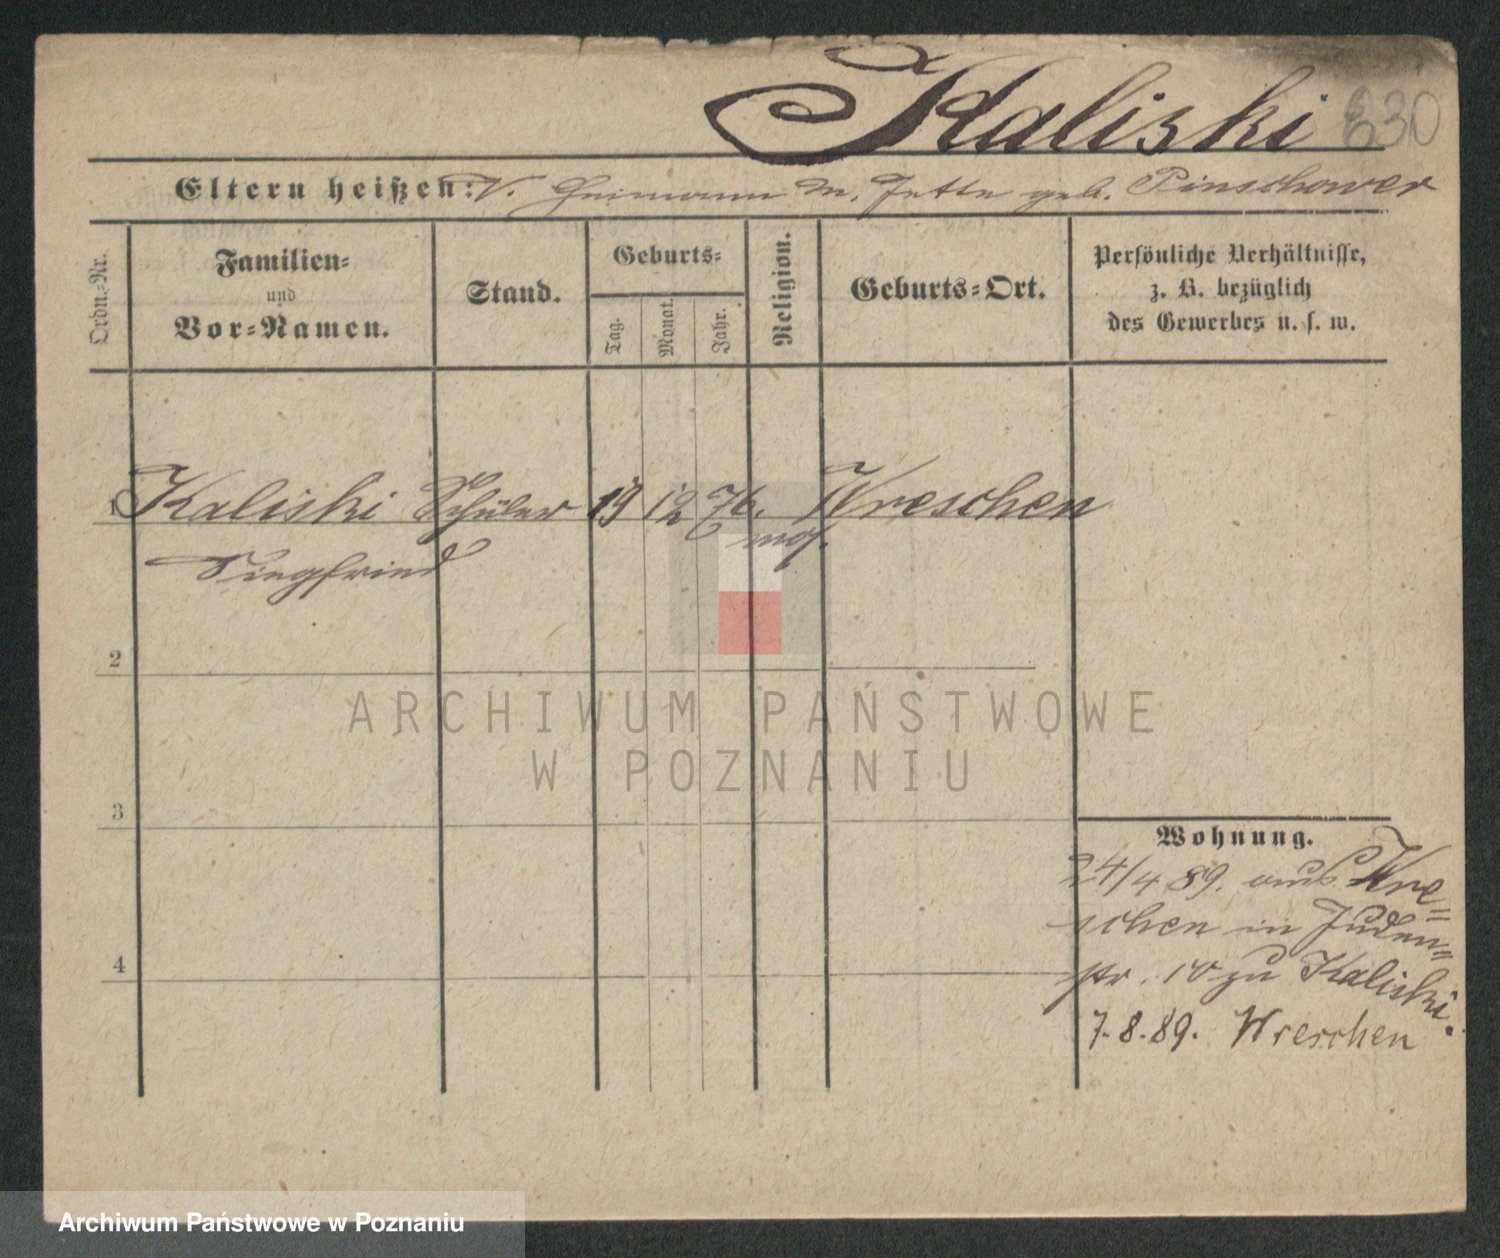 Kaliski 630
Eltern heißen: V. Heimann M. Jette geb. Pinschower
Ordn.-Nr.
Familien-
und
Vor-Namen.
Stand.
Geburts-
Tag.
Monat.
Jahr.
Religion.
Geburts-Ort.
Persönliche Verhältnisse,
z. B. bezüglich
des Gewerbes u. s. w.
1 Kaliski Schüler 19 12 76. Wreschen
mos.
Siegfried
2
ARCHIWUM PAŃSTWOWE
W POZNANIU
3
Wohnung.
24/4 89. aus Wre=
schen in Juden=
str. 10 zu Kaliski.
4
7.8.89. Wreschen
Archiwum Państwowe w Poznaniu